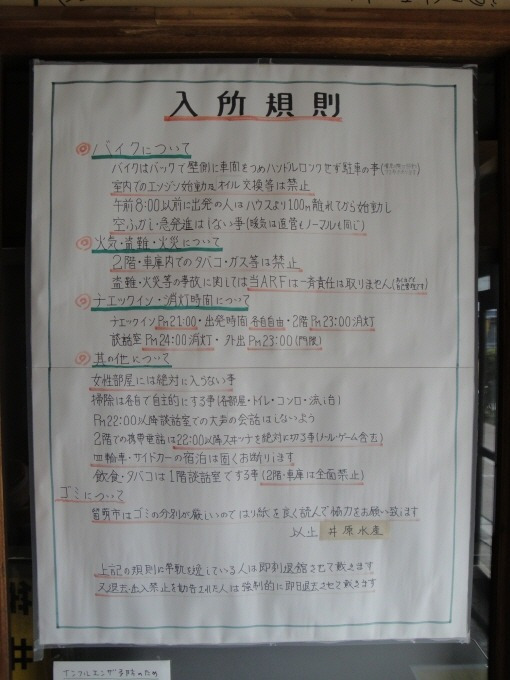 入所規則
◎バイクについて
バイクはバックで壁側に車間をつめハンドルロックせず駐車の事
室内でのエンジン始動及オイル交換等は禁止
午前8:00以前に出発の人はハウスより100m離れてから始動し
空ぶかし・急発進はしない事(暖気は直管もノーマルも同じ)
◎火気・盗難・火災について
2階・車庫内でのタバコ・ガス等は禁止
盗難・火災等の事故に関しては当ARFは一斉責任は取りません
◎チェックイン・消灯時間について
チェックインPM21:00・出発時間各自自由・2階PM23:00消灯
談話室PM24:00消灯・外出PM23:00(門限)
◎其の他について
女性部屋には絶対に入らない事
掃除は各自で自主的にする事(各部屋・トイレ・コンロ・流し台)
PM22:00以降談話室での大声の会話はしないよう
2階での携帯電話は22:00以降スイッチを絶対に切る事(メール・ゲーム含む)
四輪車・サイドカーの宿泊は固くお断りします
飲食・タバコは1階談話室でする事(2階・車庫は全面禁止)
ゴミについて
留萌市はゴミの分別が厳しいのではり紙を良く読んで協力をお願い致します
以上 井原水産
上記の規則に準軌を逸している人は即刻退館させて戴きます
又退去・出入禁止を勧告された人は強制的に即日退去させて戴きます
インフルエンザ予防のため